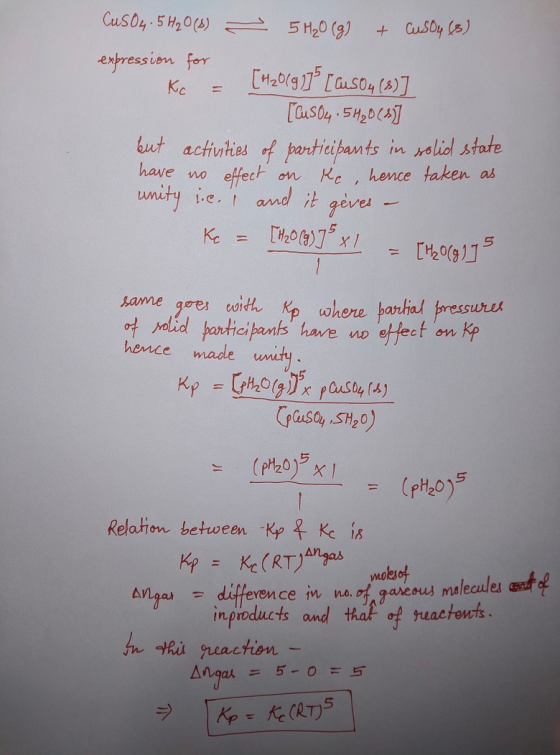 CuSO4·5H2O(s) ⇌ 5H2O(g) + CuSO4(s)
expression for
Kc = [H2O(g)]^5 [CuSO4(s)] / [CuSO4·5H2O(s)]
but activities of participants in solid state
have no effect on Kc, hence taken as
unity i.e. 1 and it gives –
Kc = [H2O(g)]^5 × 1 / 1 = [H2O(g)]^5
same goes with Kp where partial pressures
of solid participants have no effect on Kp
hence made unity.
Kp = [pH2O(g)]^5 × pCuSO4(s) / (pCuSO4.5H2O)
= (pH2O)^5 × 1 / 1 = (pH2O)^5
Relation between Kp & Kc is
Kp = Kc(RT)^Δngas
Δngas = difference in no. of moles of gaseous molecules of
in products and that of reactents.
In this reaction –
Δngas = 5 - 0 = 5
⇒ Kp = Kc(RT)^5